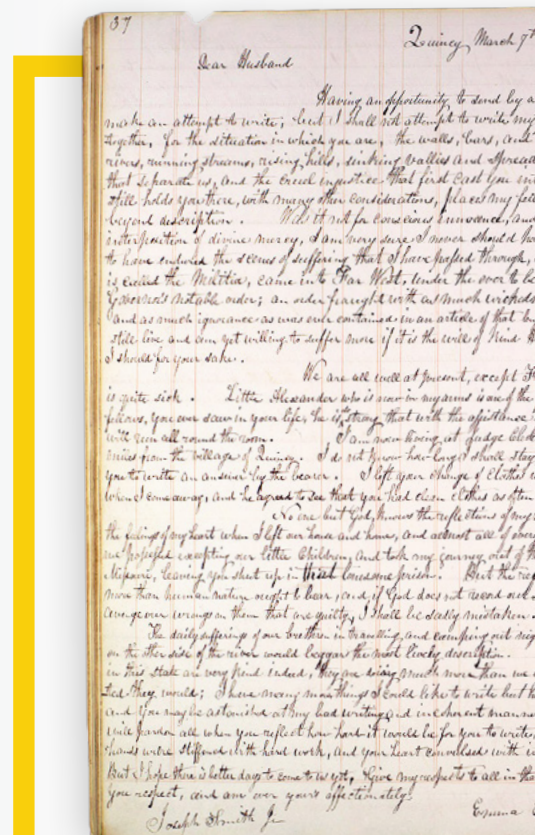 37
Quincy, March 7th
Dear Husband
Having an opportunity to send by a
make an attempt to write, but I shall not attempt to write my
together, for the situation in which you are, the walls, bars, and
rivers, running streams, rising hills, sinking vallies and spread
that separate us, and the cruel injustice that first cast you in
still holds you there, with many other considerations, places my fee
beyond description. Was it not for conscious innocence, and
interposition of divine mercy, I am very sure I never should ha
to have endured the scenes of suffering that I have passed through,
is called the Militia, came in to Far West, under the ever to be
Governor's notable order; an order fraught with as much wickedn
and as much ignorance as was ever contained in an article of that
still live and am yet willing to suffer more if it is the will of kind H
I should for your sake.
We are all well at present, except F
is quite sick. Little Alexander who is now in my arms is one of the
fellows, you ever saw in your life, he is so strong that with the assistance
will run all round the room. I am now living at Judge Cle
miles from the village of Quincy. I do not know how long I shall stay
you to write an answer by the bearer. I left your change of clothes
when I came away, and he agreed to see that you had clean clothes as often
No one but God, knows the reflections of my
the feelings of my heart when I left our house and home, and almost all of every
we possessed excepting our little Children, and took my journey out of th
Missouri, leaving you shut up in that lonesome prison. But the rec
more than human nature ought to bear, and if God does not record our
avenge our wrongs on them that are guilty, I shall be sadly mistaken.
The daily sufferings of our brethren in travelling and camping out nig
on the other side of the river would beggar the most lively description.
in this state are very kind indeed, they are doing much more than we
ted they would; I have many more things I could like to write but h
and you may be astonished at my bad writing and incoherent manne
will pardon all when you reflect how hard it would be for you to write,
hands were stiffened with hard work, and your heart convulsed with in
But I hope there is better days to come to us yet, Give my respects to all in tha
you respect, and am ever your's affectionately.
Joseph Smith Jr Emma